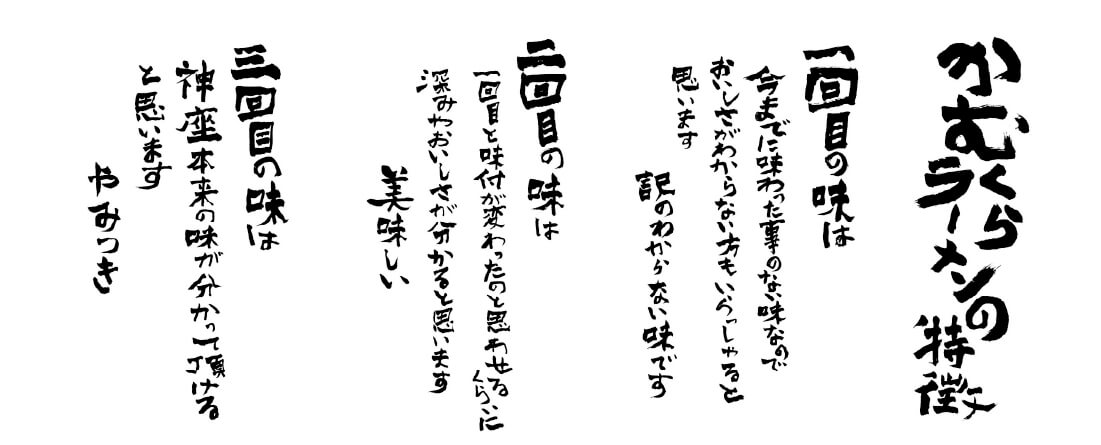 かむくら
ラーメンの
特徴
一回目の味は
今までに味わった事のない味なので
おいしさがわからない方もいらっしゃると
思います
訳のわからない味です
二回目の味は
一回目と味付が変わったのと思わせるくらいに
深みやおいしさが分かると思います
美味しい
三回目の味は
神座本来の味が分かって頂ける
と思います
やみつき